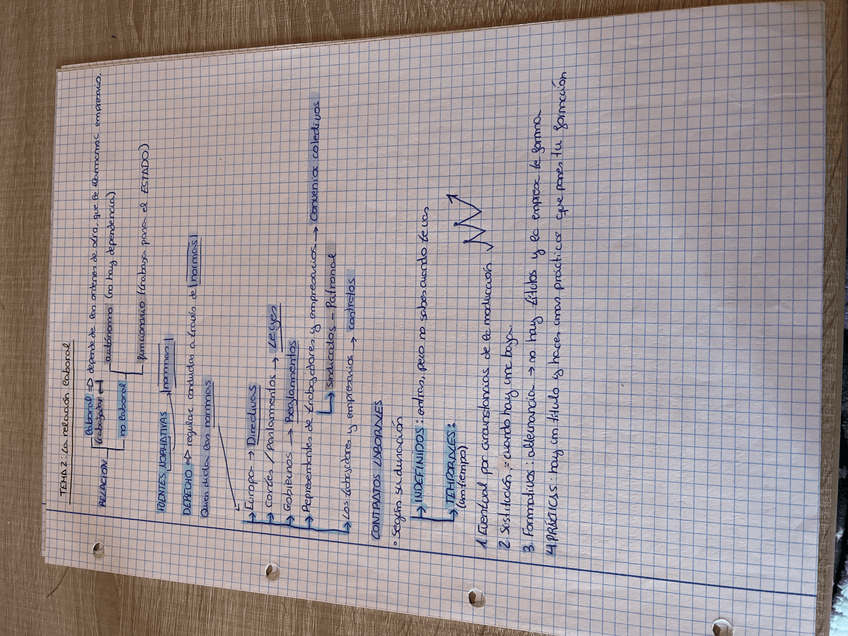 TEMA 2: La relación laboral
laboral => depende de las ordenes de otro, que se denomina empresario.
RELACIÓN trabajador
no laboral autónomo (no hay dependencia)
funcionario (trabaja para el ESTADO)
FUENTES NORMATIVAS normas
DERECHO => regular conductas a través de normas
Quien dicta las normas
→ Europa → Directivas
→ Cortes / Parlamentos → Leyes
→ Gobiernos → Reglamentos
→ Representantes de trabajadores y empresarios → Convenios colectivos
→ sindicatos - Patronal
→ Los trabajadores y empresarios → contratos
CONTRATOS LABORALES
• Según su duración
→ INDEFINIDOS: entras, pero no sabes cuando te vas
→ TEMPORALES:
(un tiempo)
1. Eventual por circunstancias de la producción
2. Sustitución: cuando hay una baja
3. Formativos: alternancia → no hay títulos y la empresa te forma
4 PRÁCTICAS: hay un título y haces unas prácticas que pones tu formación